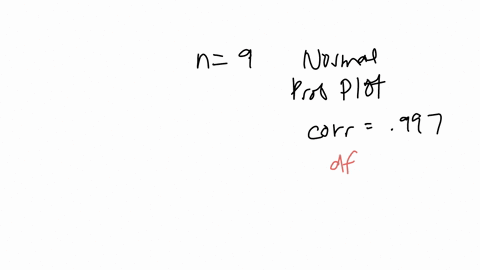 n = 9 Normal
Prob Plot
corr = .997
df